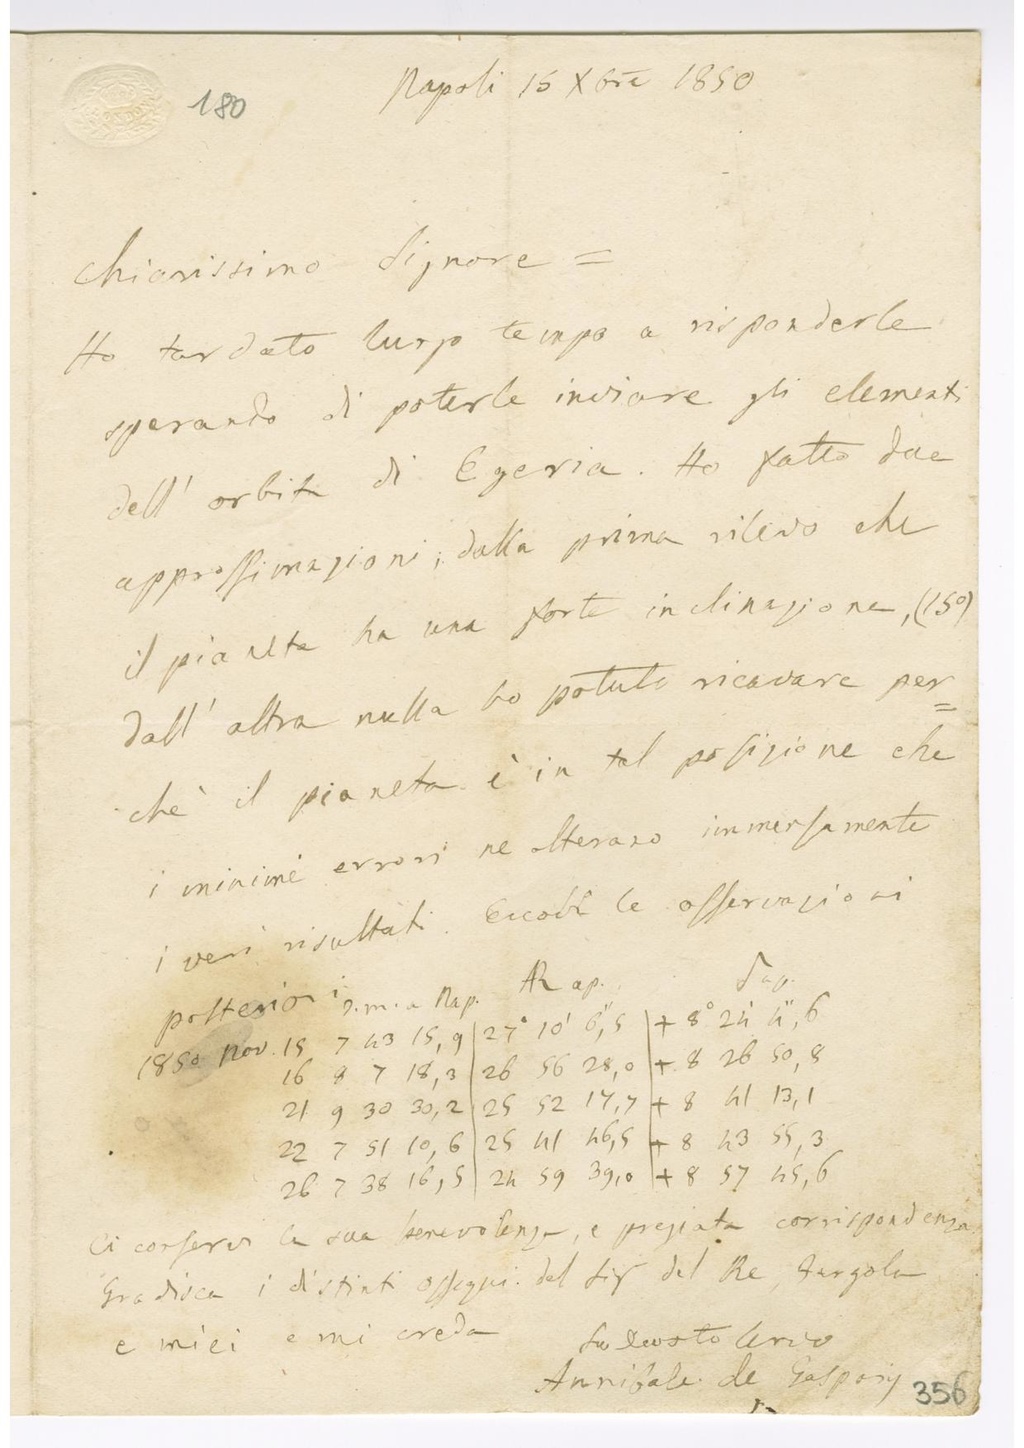 180
Napoli 15 Xbre 1850
Chiarissimo Signore =
Ho tardato lungo tempo a risponderle
sperando di poterle inviare gli elementi
dell' orbita di Egeria. Ho fatto due
approssimazioni; dalla prima rilevo che
il pianeta ha una forte inclinazione, (15°)
dall' altra nulla ho potuto ricavare per=
chè il pianeta è in tal posizione che
i minimi errori ne alterano immensamente
i veri risultati. Eccole le osservazioni
posteriori t.m. a Nap. AR ap. δ ap.
1850 Nov. 15 7 43 15,9 27° 10' 6",5 + 8° 24' 4",6
16 8 7 18,3 26 56 28,0 + 8 26 50,8
21 9 30 30,2 25 52 17,7 + 8 41 13,1
22 7 51 10,6 25 41 46,5 + 8 43 55,3
26 7 38 16,5 24 59 39,0 + 8 57 45,6
Ci conservi la sua benevolenza, e pregiata corrispondenza
Gradisca i distinti ossequi del Sigr del Re, Fergola
e miei e mi creda
Suo Devoto Servo
Annibale de Gasparis
356